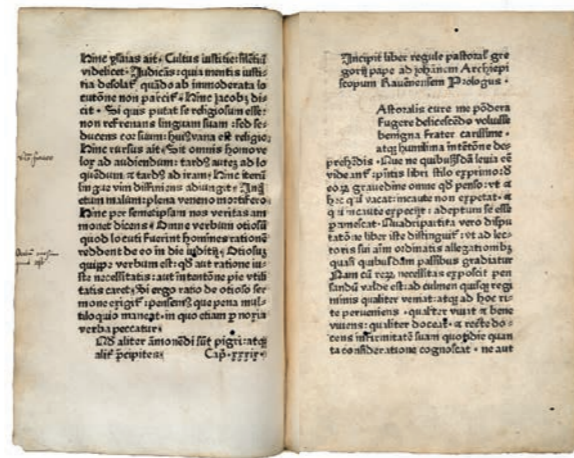 Hinc ysaias ait · Cultus iusticie silēciū
videlicet · Judicās: quia mentis iusti
tia desolat᷑ quādo ab immoderata lo
cutōne non parcit᷑ · Hinc jacobꝰ di
cit · Si quis putat se religiosum esse:
non refrenans linguam suam: sed se
ducens cor suum: huiꝰ vana est religio
Hinc rursus ait · Sit omnis homo ve
lox ad audiendum: tardꝰ autē ad lo
quēdum ⁊ tardꝰ ad iram · Hinc iterū
lingue vim diffiniens adiungit · Inq̄
etum malum: plena veneno mortifero
Hinc per semetipsam nos veritas am
monet dicens · Omne verbum otiosū
quod locuti fuerint homines rationē
reddent de eo in die iudicii · Otiosū
quippe verbum est: qd aut ratione iu
ste necessitatis: aut intentōne pie vtili
tatis caret · Si ergo ratio de otioso ser
mone exigit᷑: pensemꝰ que pena mul
tiloquio maneat · in quo etiam p noxia
verba peccatur
Qd aliter āmonēdi sūt pigri: atqꝫ
alit᷑ p̄cipites Cap · xxxix ·
Incipit liber regule pastoral᷑ gre
gorij pape ad johānem Archiepi
scopum Ravēnensem Prologus ·
Astoralis cure me pōdera
fugere delitescēdo voluisse
benigna frater carissime ·
atqꝫ humilima intētōne de
prehēdis · Que ne quibusdā leuia eē
videant᷑: p̄ntis libri stilo exprimo: d̄
eoꝝ grauedine omne qd penso: vt ⁊
hec qui vacat: incaute non expetat · ⁊
qui incaute expeciit: adeptum se esse
pamescat · Quadripartita vero dispu
tatōne liber iste distinguit᷑: vt ad lec
toris sui aīm ordinatis allegationibꝰ
quasi quibusdam passibus gradiatur
Nam cū reꝝ necessitas exposcit pen
sandū valde est: ad culmen quisqꝫ regi
minis qualiter veniat: atqꝫ ad hoc ri
te perueniens · qualiter viuat ⁊ bene
viuens: qualiter doceat · ⁊ recte do
cens infirmitatē suam quotidie quan
ta consideratione cognoscat · ne aut